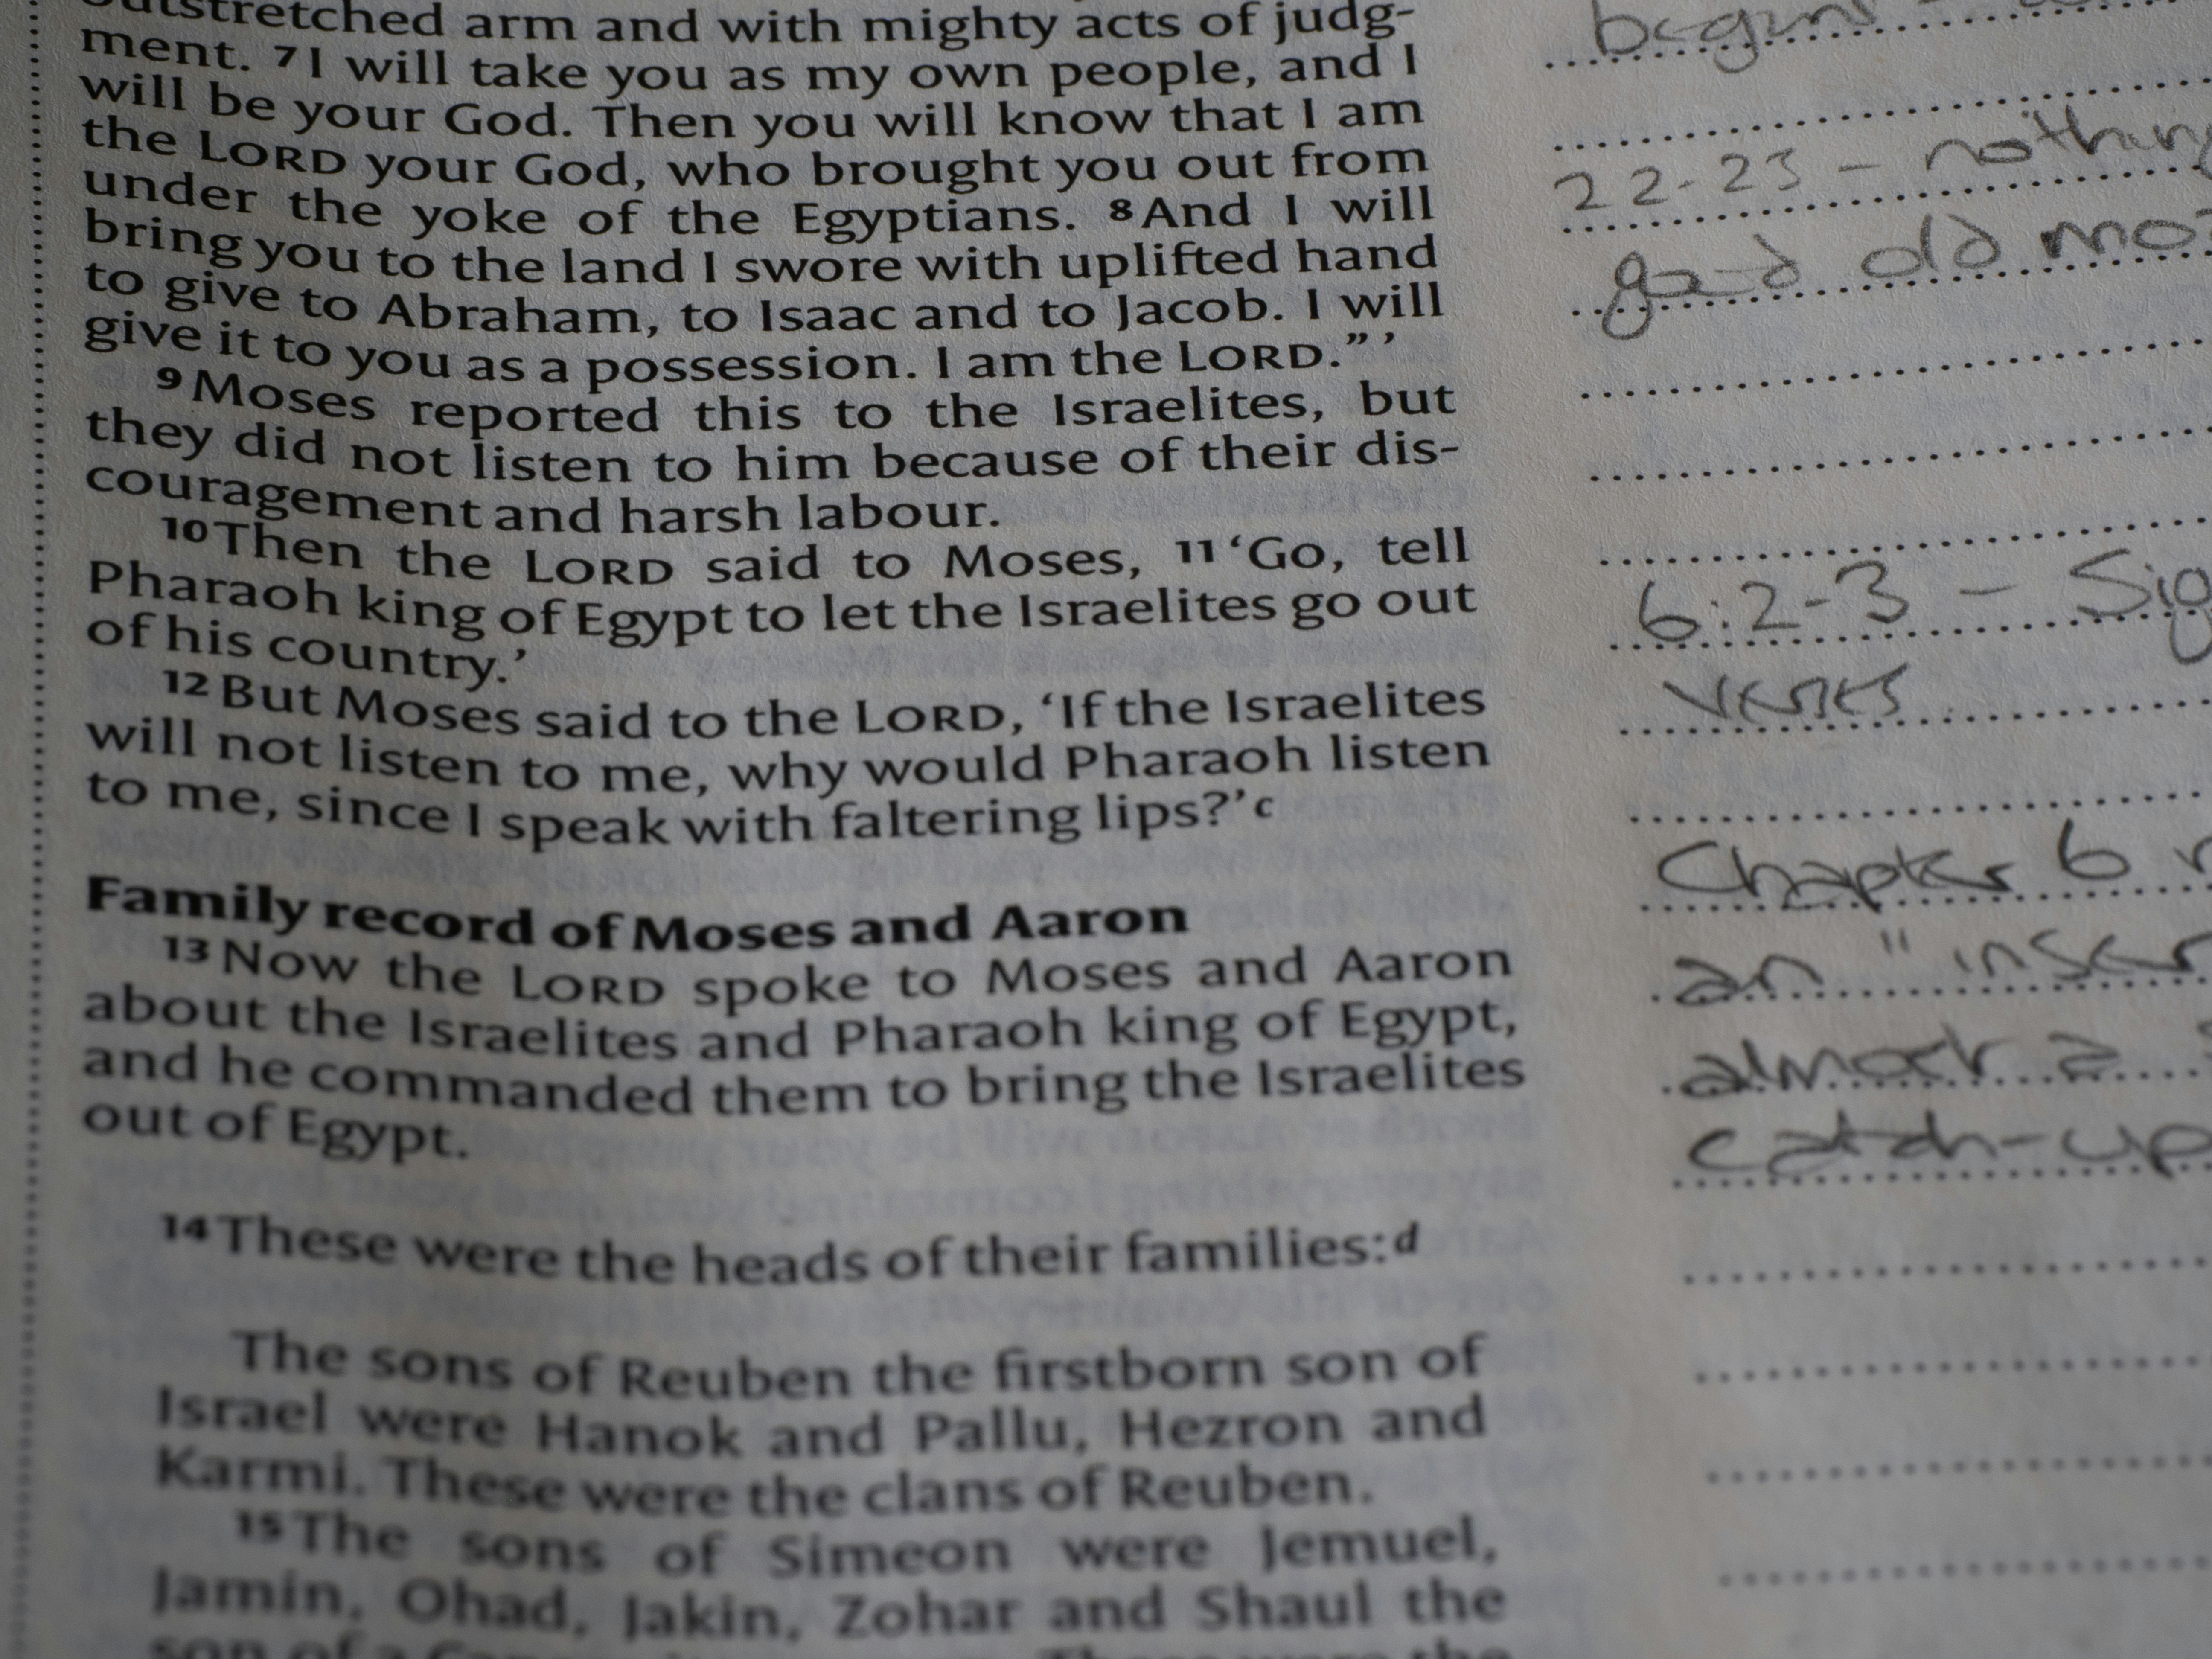 outstretched arm and with mighty acts of judg-
ment. 7 I will take you as my own people, and I
will be your God. Then you will know that I am
the LORD your God, who brought you out from
under the yoke of the Egyptians. 8 And I will
bring you to the land I swore with uplifted hand
to give to Abraham, to Isaac and to Jacob. I will
give it to you as a possession. I am the LORD.” ’
9 Moses reported this to the Israelites, but
they did not listen to him because of their dis-
couragement and harsh labour.
10 Then the LORD said to Moses, 11 ‘Go, tell
Pharaoh king of Egypt to let the Israelites go out
of his country.’
12 But Moses said to the LORD, ‘If the Israelites
will not listen to me, why would Pharaoh listen
to me, since I speak with faltering lips?’ c
Family record of Moses and Aaron
13 Now the LORD spoke to Moses and Aaron
about the Israelites and Pharaoh king of Egypt,
and he commanded them to bring the Israelites
out of Egypt.
14 These were the heads of their families: d
The sons of Reuben the firstborn son of
Israel were Hanok and Pallu, Hezron and
Karmi. These were the clans of Reuben.
15 The sons of Simeon were Jemuel,
Jamin, Ohad, Jakin, Zohar and Shaul the
son of a
22-23 - nothing
good old
6:2-3 -
verses
Chapter 6
an "
almost a
catch-up